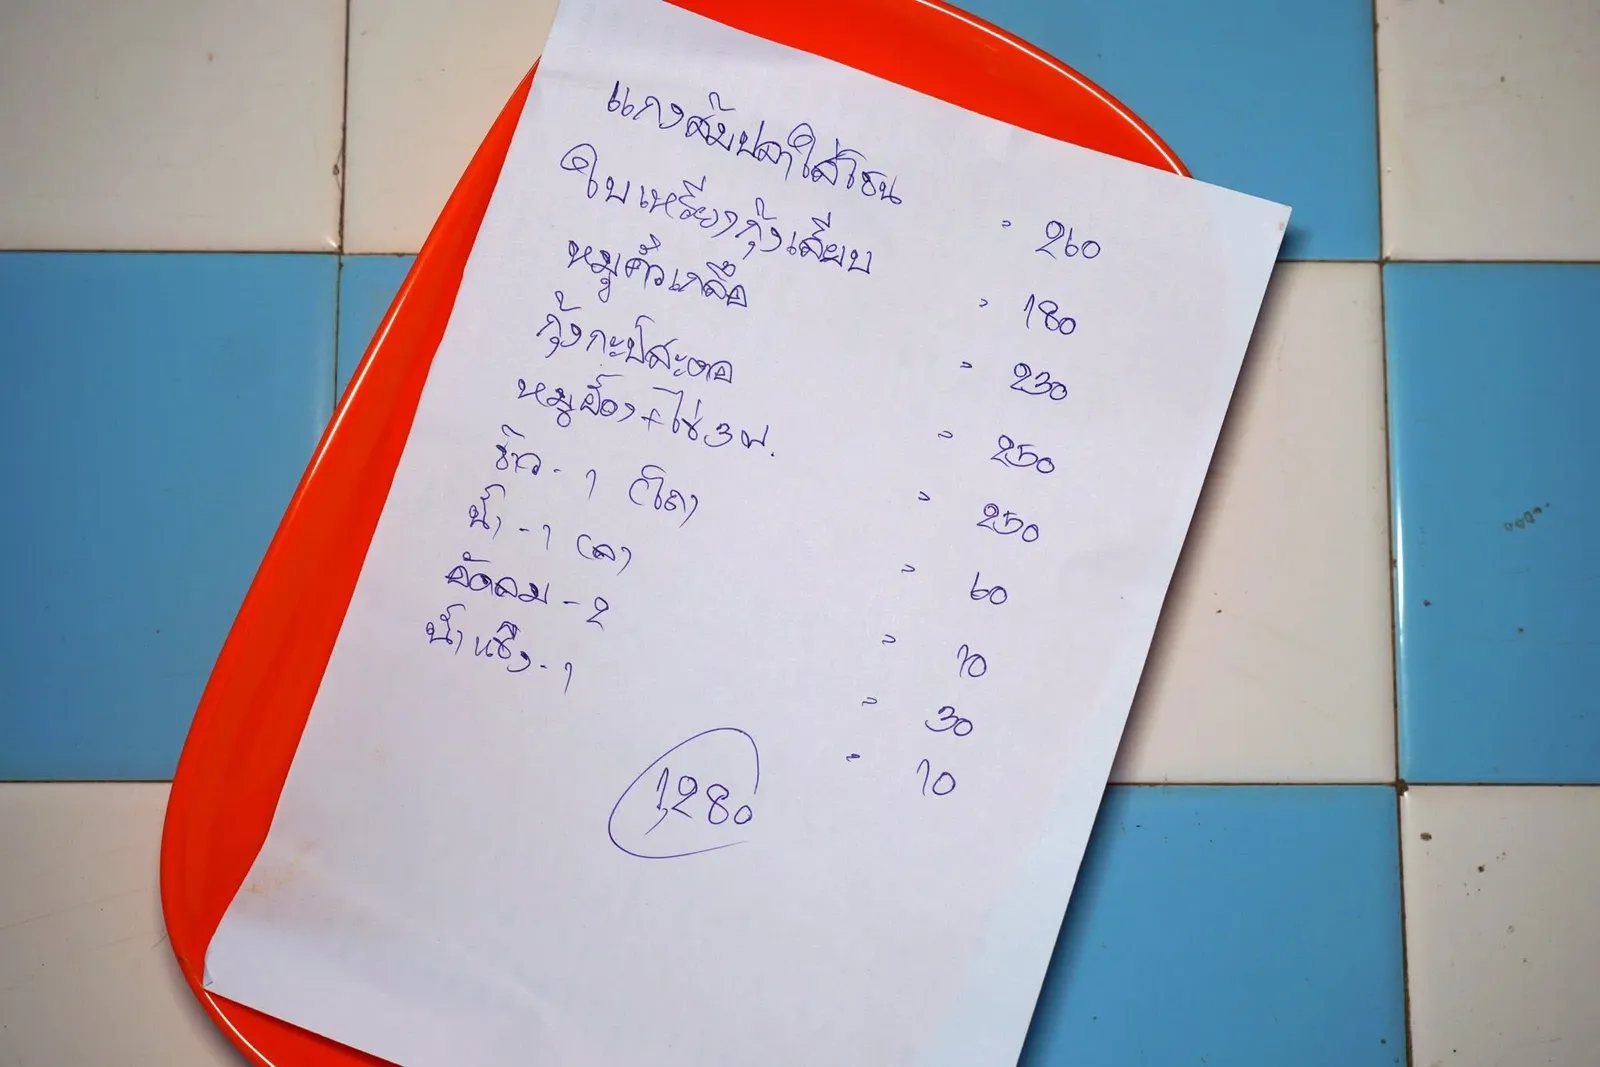 แกงส้มปลาใส่โชน = 260
ใบเหรียงกุ้งเสียบ = 180
หมูคั่วเกลือ = 230
กุ้งกะปิสะตอ = 250
หมูฮ้อง + ไข่ 3 ฟ. = 250
ข้าว - 1 (โถ) = 60
น้ำ - 1 (ล) = 10
อัดลม - 2 = 30
น้ำแข็ง - 1 = 10
1,280